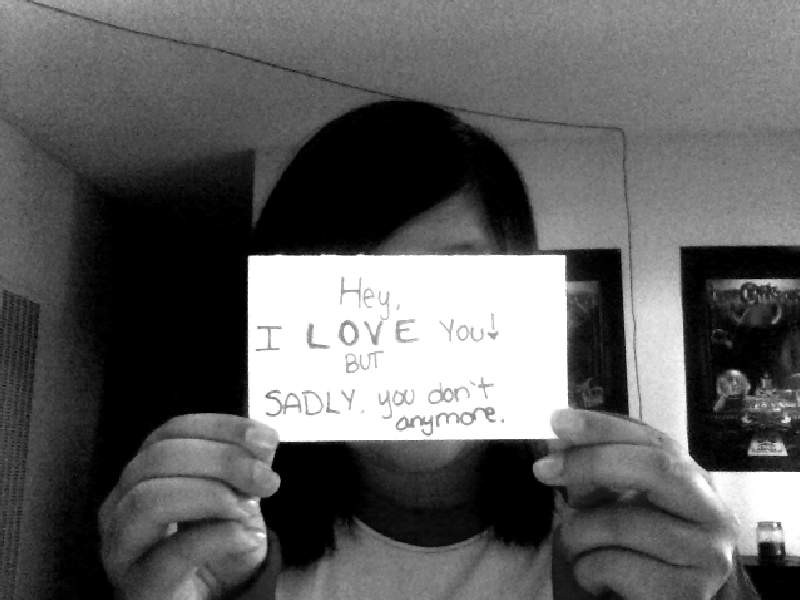 Hey,
I LOVE You!
BUT
SADLY, you don't
anymore.